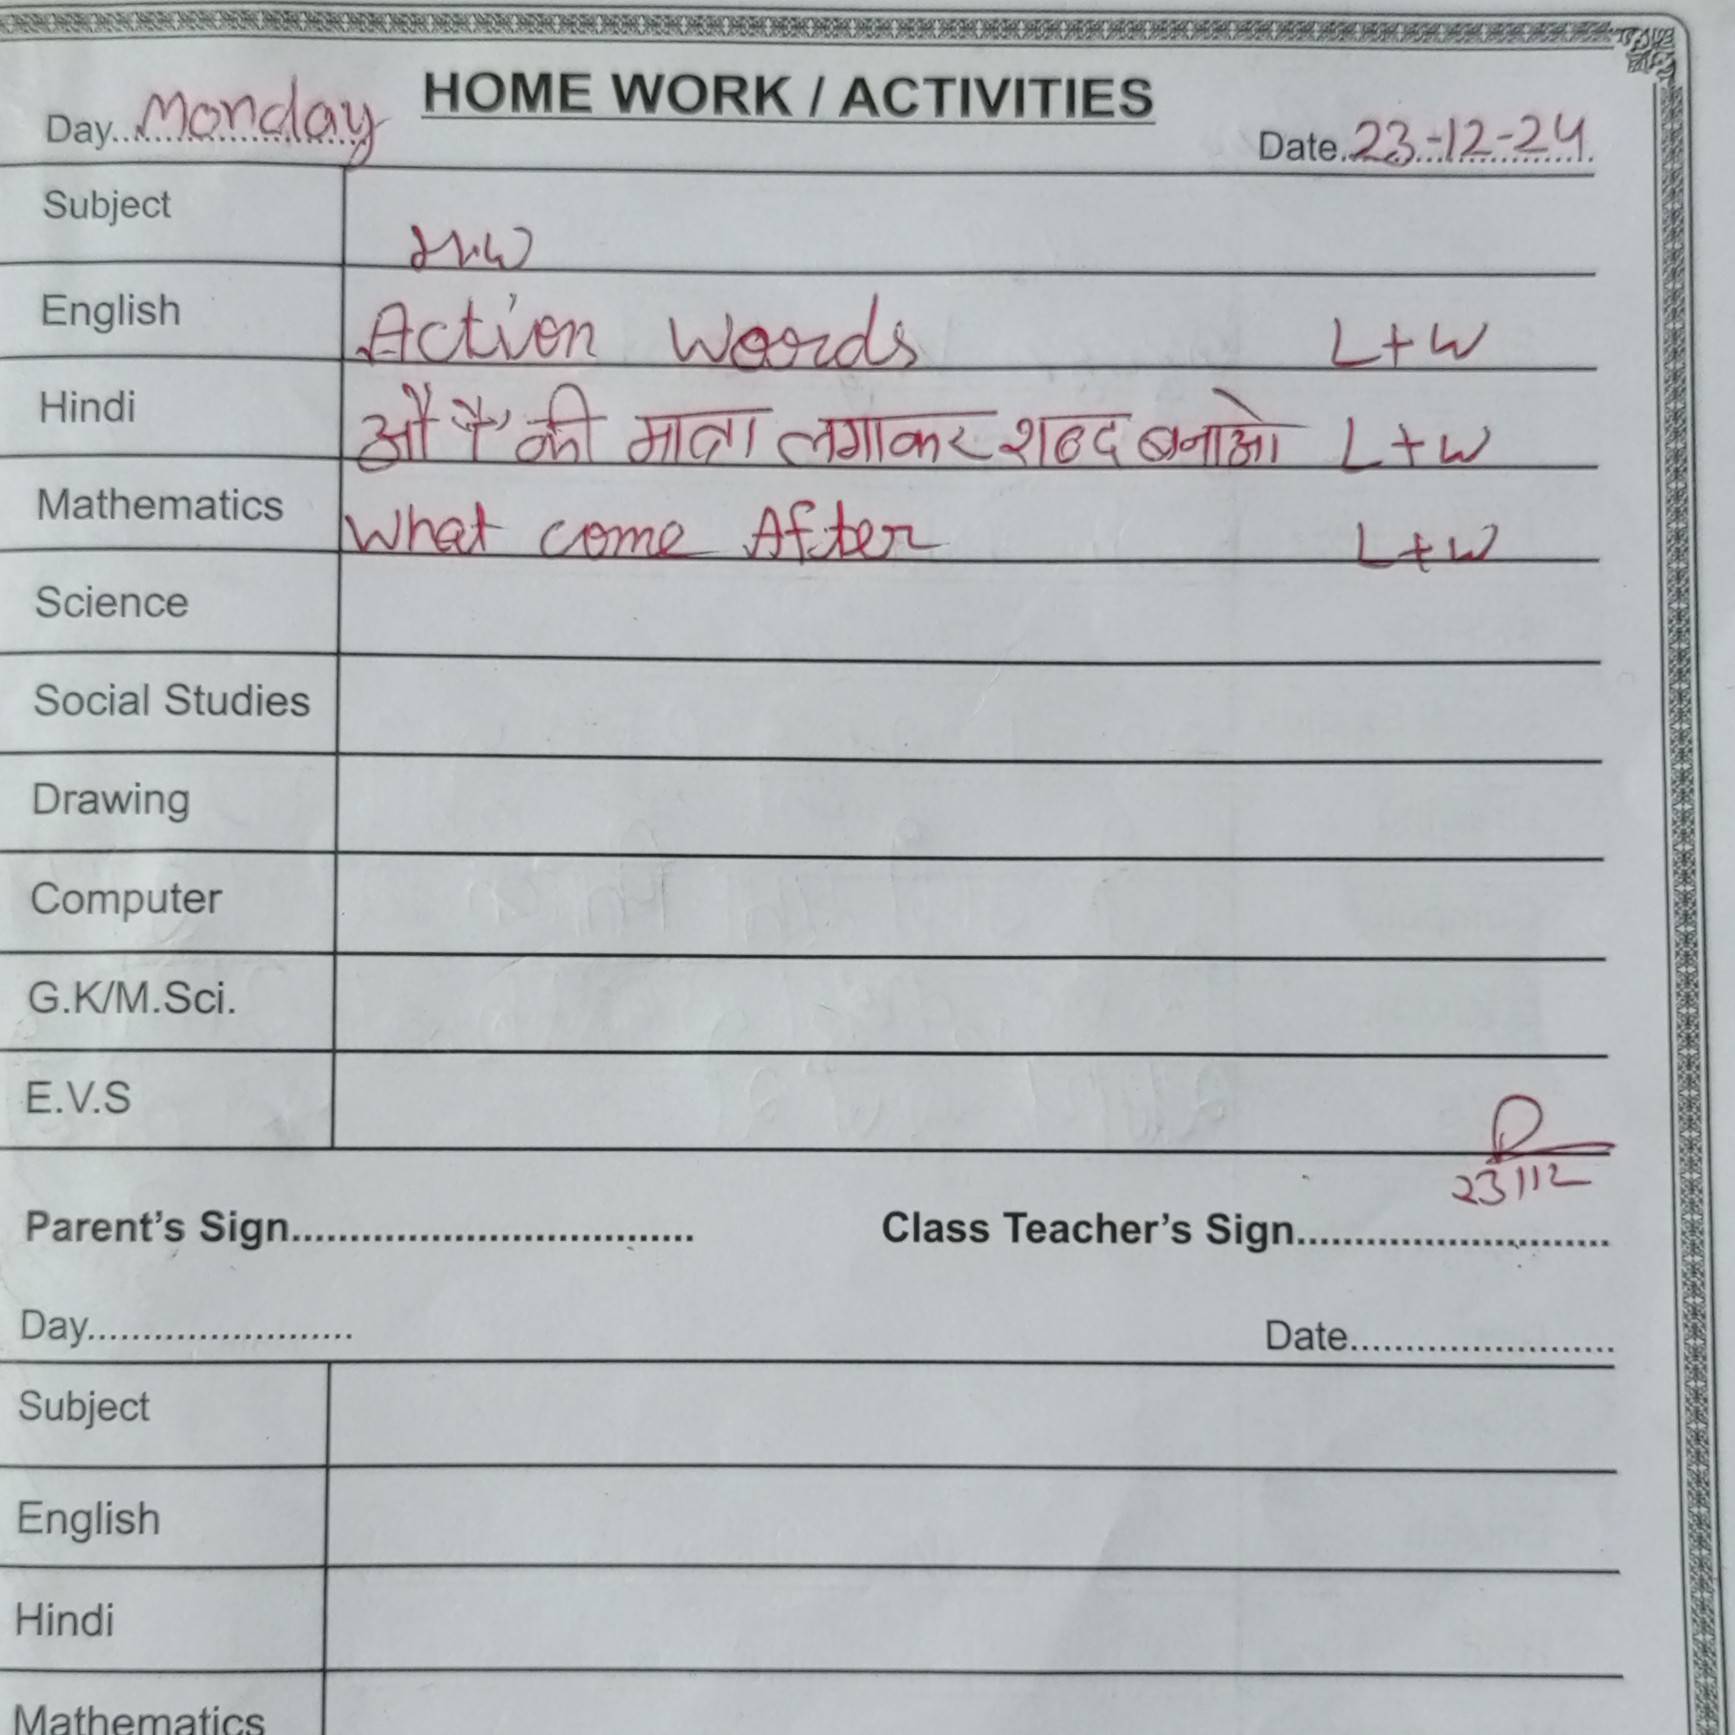 HOME WORK / ACTIVITIES
Day..Monday Date.23-12-24
Subject H.W
English Action Words L+W
Hindi की मात्रा लगाकर शब्द बनाओ L+W
Mathematics What come After L+W
Science
Social Studies
Drawing
Computer
G.K/M.Sci.
E.V.S
23/12
Parent's Sign.................................. Class Teacher's Sign...........................
Day........................ Date........................
Subject
English
Hindi
Mathematics